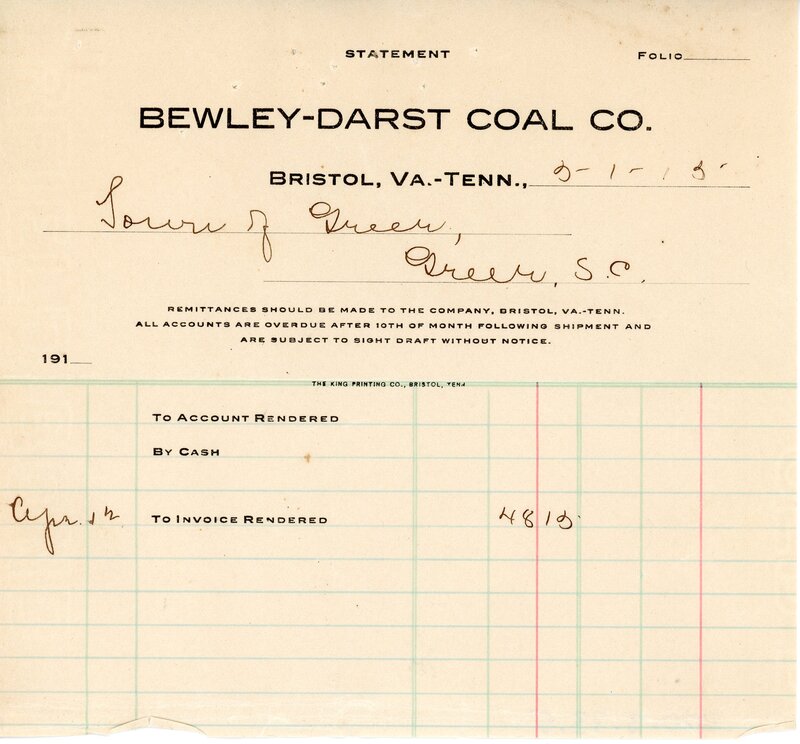 STATEMENT
FOLIO
BEWLEY-DARST COAL CO.
BRISTOL, VA.-TENN., 5-1-15
Town of Greer,
Greer, S.C.
REMITTANCES SHOULD BE MADE TO THE COMPANY, BRISTOL, VA.-TENN.
ALL ACCOUNTS ARE OVERDUE AFTER 10TH OF MONTH FOLLOWING SHIPMENT AND
ARE SUBJECT TO SIGHT DRAFT WITHOUT NOTICE.
191
THE KING PRINTING CO., BRISTOL, TENN
TO ACCOUNT RENDERED
BY CASH
Apr. TO INVOICE RENDERED 48 15